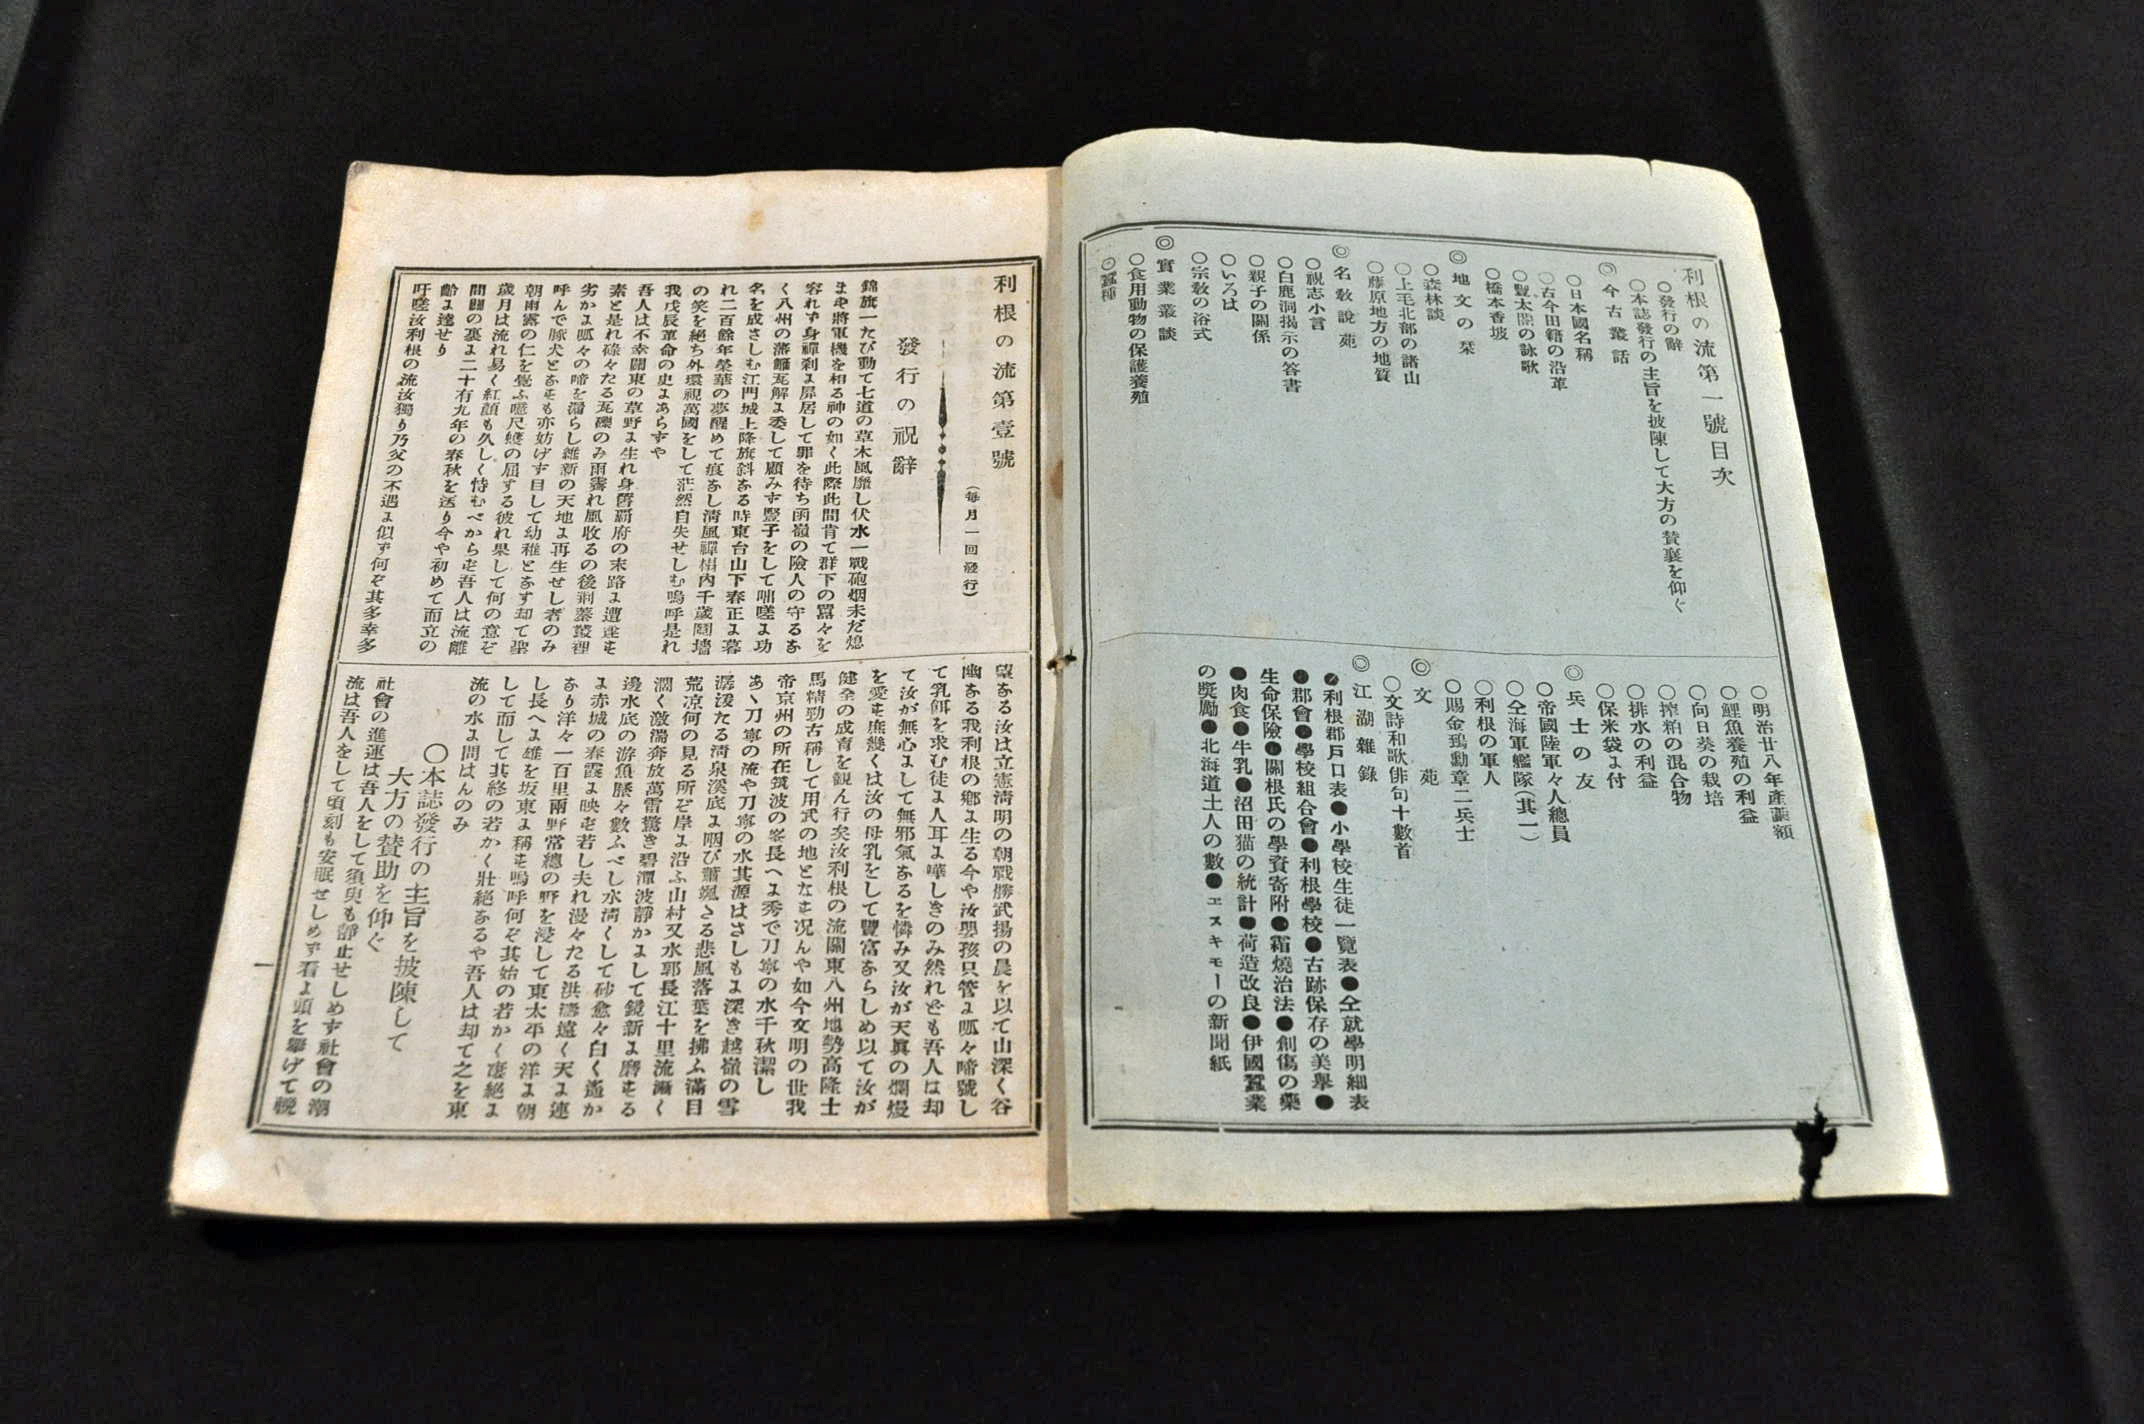 利根の流第一號目次
○發行の辭
○本誌發行の主旨を披陳して大方の賛襄を仰ぐ
◎今古叢話
○日本國名稱
○古今田籍の沿革
○豐太閤の詠歌
○橋本香坡
◎地文の栞
○森林談
○上毛北部の諸山
○藤原地方の地質
◎名敎說苑
○視志小言
○白鹿洞揭示の答書
○親子の關係
○いろは
○宗敎の浴式
◎實業叢談
○食用動物の保護養殖
○蠶種
○明治廿八年產繭額
○鯉魚養殖の利益
○向日葵の栽培
○搾粕の混合物
○排水の利益
○保米袋よ付
◎兵士の友
○帝國陸軍々人總員
○仝海軍艦隊(其一)
○利根の軍人
○賜金鵄勳章二兵士
◎文苑
○文詩和歌俳句十數首
◎江湖雜錄
●利根郡戶口表●小學校生徒一覽表●仝就學明細表
●郡會●學校組合會●利根學校●古跡保存の美擧●
生命保險●關根氏の學資寄附●霜燒治法●創傷の藥
●肉食●牛乳●沼田猫の統計●荷造改良●伊國蠶業
の獎勵●北海道土人の數●エスキモーの新聞紙
利根の流第壹號
(每月一回發行)
發行の祝辭
錦旗一たび動て七道の草木風靡し伏水一戰砲烟未だ熄
まず將軍機を相る神の如く此際此間肯て群下の囂々を
容れず身禪刹よ屏居して罪を待ち函嶺の險人の守るな
く八州の藩籬瓦解よ委して顧みず豎子をして咄嗟よ功
名を成さしむ江門城上降旗斜なる時東台山下春正よ暮
れ二百餘年榮華の夢醒めて痕なし清風禪榻內千歲鬩墻
の笑を絕ち外環視萬國をして茫然自失せしむ嗚呼是れ
我戊辰革命の史よあらずや
吾人は不幸關東の草野よ生れ身舊覇府の末路よ遭逢せ
素と是れ碌々たる瓦礫のみ雨霽れ風收るの後荊蓁叢裡
劣かよ呱々の啼を漏らし維新の天地よ再生せし者のみ
呼んで豚犬となせも亦妨げず目して幼稚となす却て聖
朝雨露の仁を覺ふ噫尺蠖の屈する彼れ果して何の意ぞ
歲月は流れ易く紅顏も久しく恃むべからず吾人は流離
間關の裏よ二十有九年の春秋を送り今や初めて而立の
齡よ達せり
吁嗟汝利根の流汝獨り乃父の不遇よ似ず何ぞ其多幸多
望なる汝は立憲淸明の朝戰勝武揚の晨を以て山深く谷
幽なる我利根の鄕よ生る今や汝嬰孩只管よ呱々啼號し
て乳餌を求む徒よ人耳よ嘩しきのみ然れども吾人は却
て汝が無心よして無邪氣なるを憐み又汝が天眞の爛熳
を愛せ庶幾くは汝の母乳をして豐富ならしめ以て汝が
健全の成育を觀ん行矣汝利根の流關東八州地勢高隆士
馬精勁古稱して用武の地となせ况んや如今文明の世我
帝京州の所在筑波の峯長へよ秀で刀寧の水千秋潔し
あゝ刀寧の流や刀寧の水其源はさしもよ深き越嶺の雪
潺湲たる淸泉溪底よ咽び蕭颯たる悲風落葉を拂ふ滿目
荒凉何の見る所ぞ岸よ沿ふ山村又水郭長江十里流漸く
濶く激湍奔放萬雷驚き碧潭波靜かよして鏡新よ磨せる
邊水底の游魚臙々數ふべし水淸くして砂愈々白く遙か
よ赤城の春霞よ映せ若し夫れ漫々たる洪濤遠く天よ連
なり洋々一百里兩野常總の野を浸して東太平の洋よ朝
し長へよ雄を坂東よ稱せ嗚呼何ぞ其始の若かく凄絕よ
して而して其終の若かく壯絕なるや吾人は却て之を東
流の水よ問はんのみ
○本誌發行の主旨を披陳して
大方の賛助を仰ぐ
社會の進運は吾人をして須臾も靜止せしめず社會の潮
流は吾人をして頃刻も安眠せしめず看よ頭を擧げて輓
一